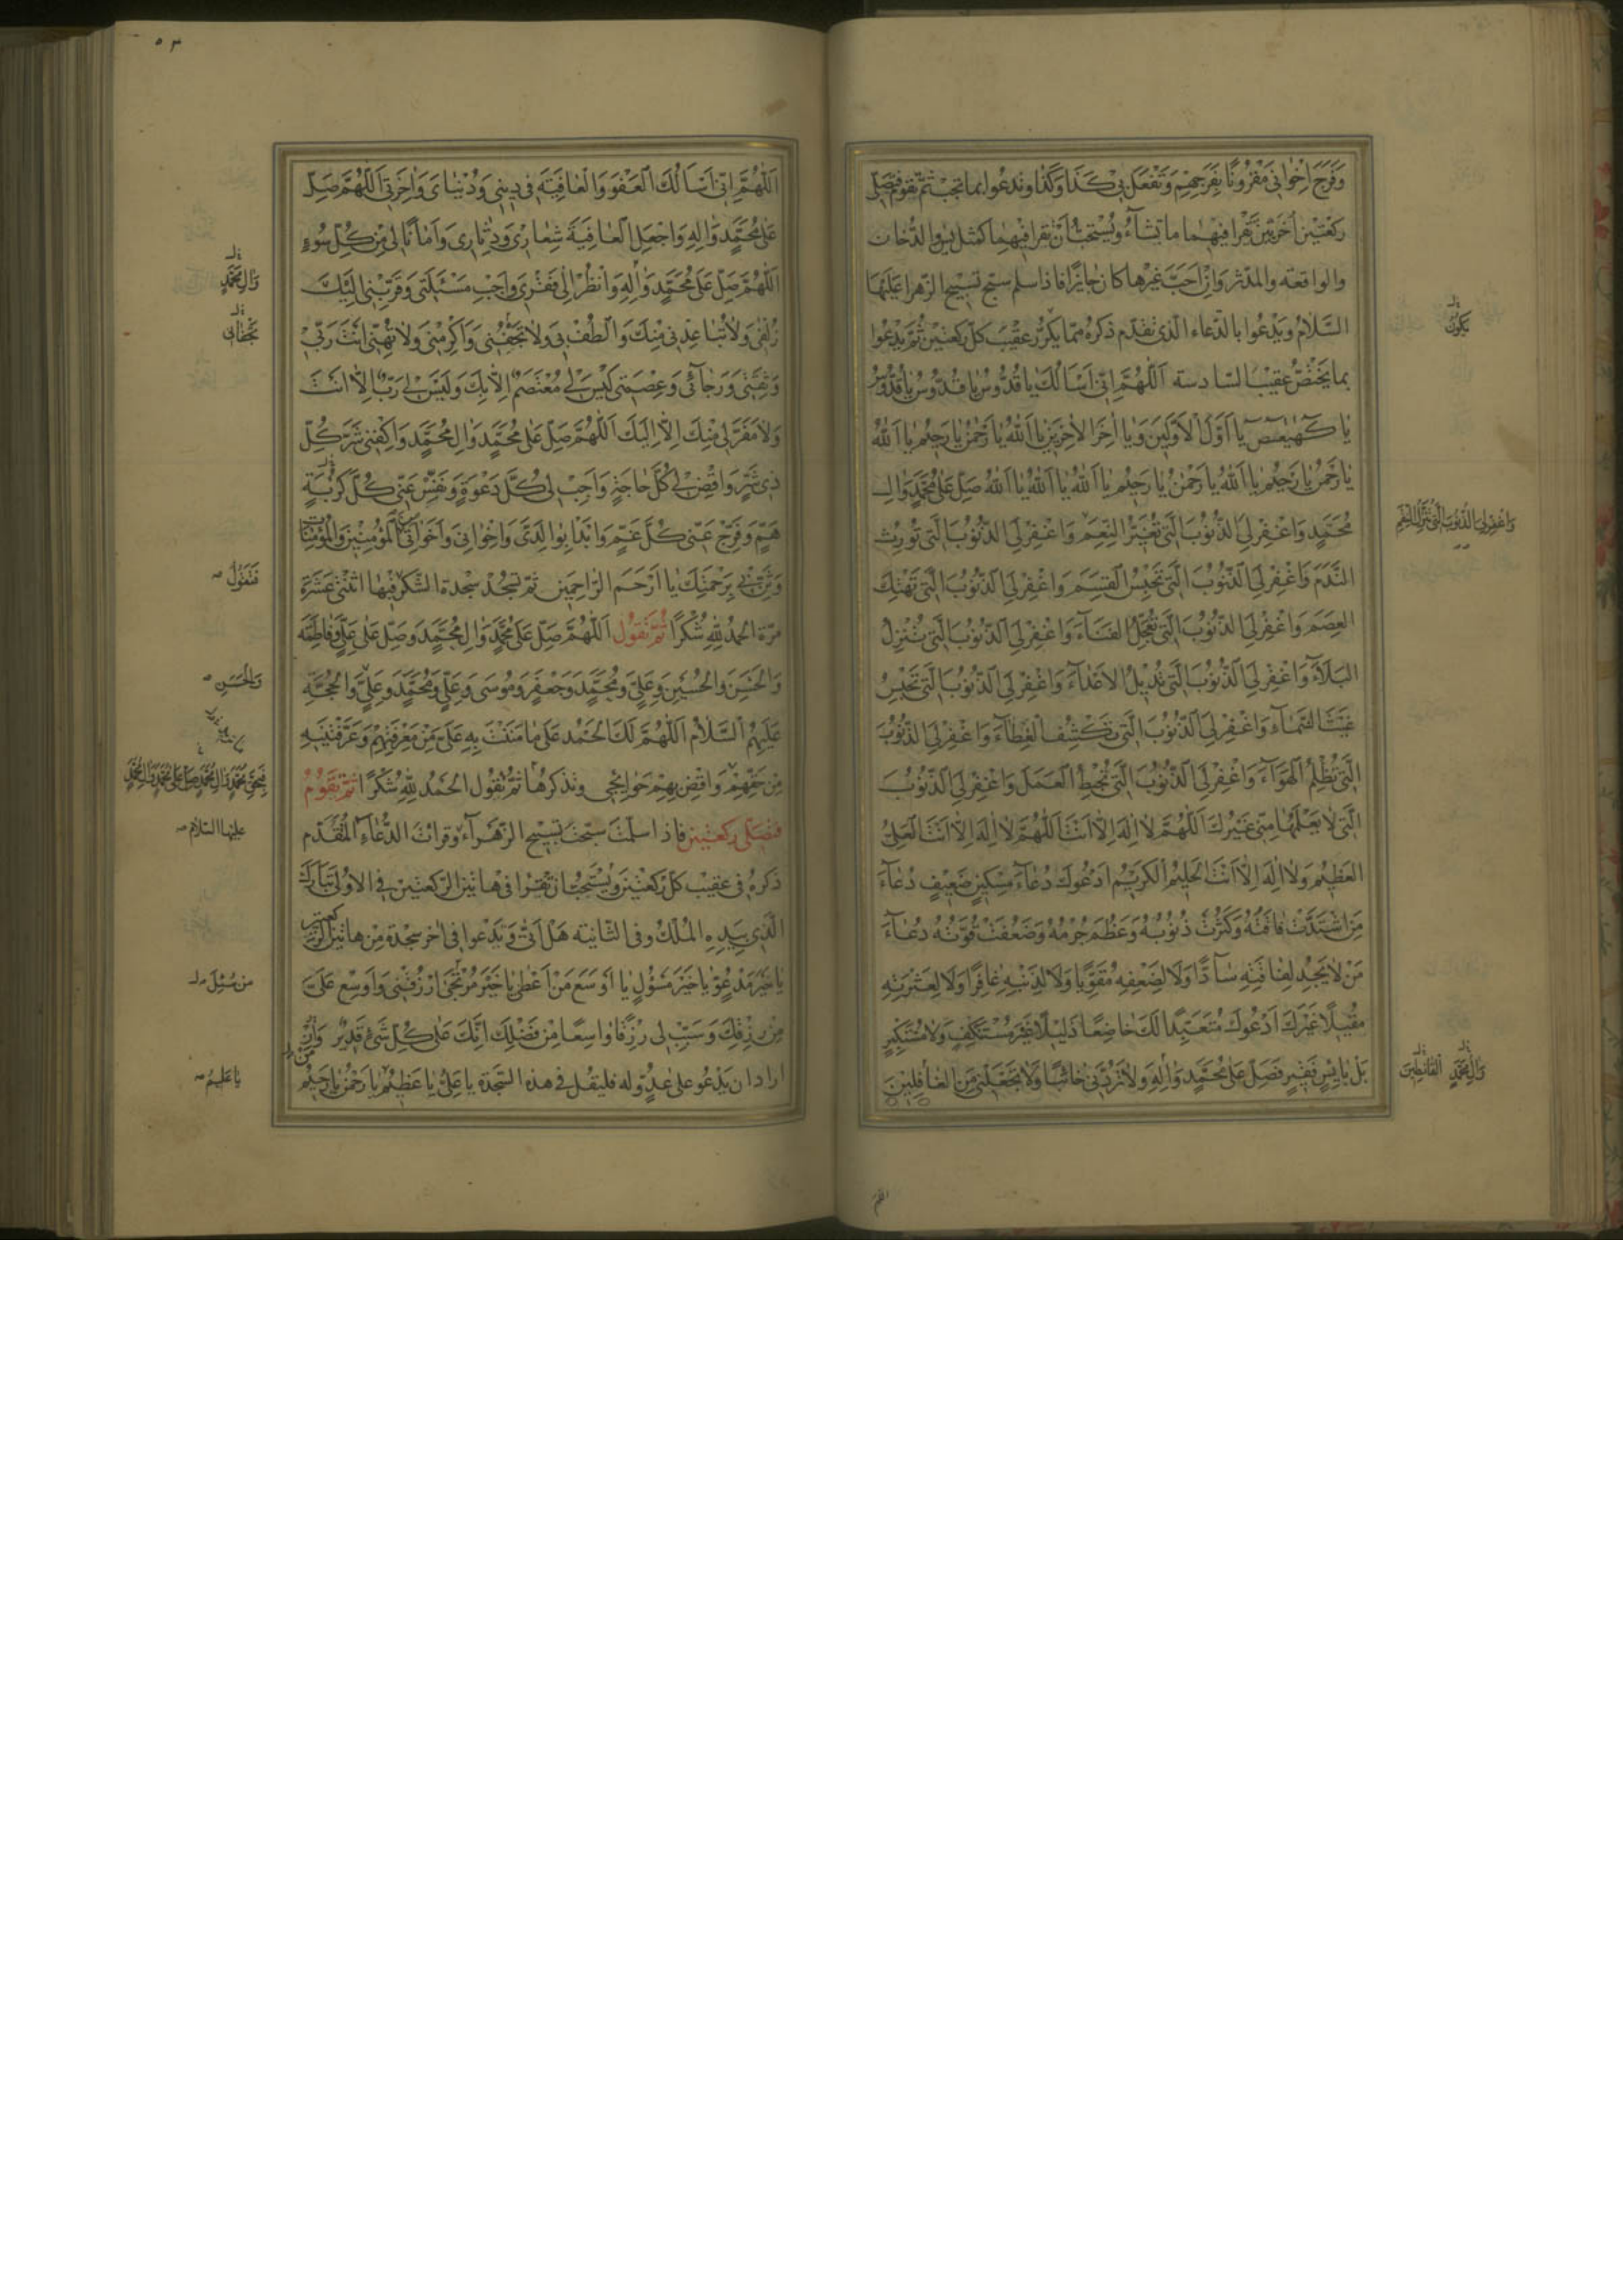 وَفَرَجَ اِخْوانى مَقْرُونًا بِفَرَجِهِمْ وَتَفْعَلَ بى كَذا وَكَذا وتدعوا بما تحبّ ثمّ تقوم فتصلّى
ركعتين اُخريين تقرأ فيهما ما تشاء ويُستحبّ أن تقرأ فيهما كمثل يس والدّخان
والواقعة والمدّثّر وان احبّ غيرها كان جايزًا فاذا سلم سبّح تسبيح الزّهرا عليها
السّلام ويدعوا بالدّعاء الّذى تقدّم ذكره ممّا يكرّر عقيب كلّ ركعتين ثمّ يدعوا
بما يختصّ عقيب السّادسة اَللّهُمَّ اِنّى اَسْاَلُكَ يا قُدُّوسُ يا قُدُّوسُ يا قُدُّوسُ
يا كهيعص يا اَوَّلَ الْاَوَّلينَ وَيا اٰخِرَ الْاٰخِرينَ يا اَللّٰهُ يا رَحْمٰنُ يا رَحيمُ يا اَللّٰهُ
يا رَحْمٰنُ يا رَحيمُ يا اَللّٰهُ يا رَحْمٰنُ يا رَحيمُ يا اَللّٰهُ يا اَللّٰهُ يا اَللّٰهُ صَلِّ عَلى مُحَمَّدٍ وَاٰلِ
مُحَمَّدٍ وَاغْفِرْ لِىَ الذُّنُوبَ الَّتى تُغَيِّرُ النِّعَمَ وَاغْفِرْ لِىَ الذُّنُوبَ الَّتى تُورِثُ
النَّدَمَ وَاغْفِرْ لِىَ الذُّنُوبَ الَّتى تَحْبِسُ الْقِسَمَ وَاغْفِرْ لِىَ الذُّنُوبَ الَّتى تَهْتِكُ
الْعِصَمَ وَاغْفِرْ لِىَ الذُّنُوبَ الَّتى تُعَجِّلُ الْفَناءَ وَاغْفِرْ لِىَ الذُّنُوبَ الَّتى تُنْزِلُ
الْبَلاءَ وَاغْفِرْ لِىَ الذُّنُوبَ الَّتى تُديلُ الْاَعْداءَ وَاغْفِرْ لِىَ الذُّنُوبَ الَّتى تَحْبِسُ
غَيْثَ السَّماءِ وَاغْفِرْ لِىَ الذُّنُوبَ الَّتى تَكْشِفُ الْغِطاءَ وَاغْفِرْ لِىَ الذُّنُوبَ
الَّتى تُظْلِمُ الْهَواءَ وَاغْفِرْ لِىَ الذُّنُوبَ الَّتى تُحْبِطُ الْعَمَلَ وَاغْفِرْ لِىَ الذُّنُوبَ
الَّتى لا يَعْلَمُها مِنّى غَيْرُكَ اَللّهُمَّ لا اِلٰهَ اِلّا اَنْتَ اَللّهُمَّ لا اِلٰهَ اِلّا اَنْتَ الْعَلِىُّ
الْعَظيمُ وَلا اِلٰهَ اِلّا اَنْتَ الْحَليمُ الْكَريمُ اَدْعُوكَ دُعاءَ مِسْكينٍ ضَعيفٍ دُعاءَ
مَنِ اشْتَدَّتْ فاقَتُهُ وَكَثُرَتْ ذُنُوبُهُ وَعَظُمَ جُرْمُهُ وَضَعُفَتْ قُوَّتُهُ دُعاءَ
مَنْ لا يَجِدُ لِفاقَتِهِ سادًّا وَلا لِضَعْفِهِ مُقَوِّيًا وَلا لِذَنْبِهِ غافِرًا وَلا لِعَثْرَتِهِ
مُقيلًا غَيْرَكَ اَدْعُوكَ مُتَعَبِّدًا لَكَ خاضِعًا ذَليلًا غَيْرَ مُسْتَنْكِفٍ وَلا مُسْتَكْبِرٍ
بَلْ بائِسٍ فَقيرٍ فَصَلِّ عَلى مُحَمَّدٍ وَاٰلِهِ وَلا تَرُدَّنى خائِبًا وَلا تَجْعَلْنى مِنَ الْغافِلينَ
يَكُونُ
وَاغْفِرْ لِىَ الذُّنُوبَ الَّتى تُنْزِلُ النِّقَمَ
وَاٰلِ مُحَمَّدٍ الْقانِطينَ
اللهم
٥٣
اَللّهُمَّ اِنّى اَسْاَلُكَ الْعَفْوَ وَالْعافِيَةَ فى دينى وَدُنْياىَ وَاٰخِرَتى اَللّهُمَّ صَلِّ
عَلى مُحَمَّدٍ وَاٰلِهِ وَاجْعَلِ الْعافِيَةَ شِعارى وَدِثارى وَاَمانًا لى مِنْ كُلِّ سُوءٍ
اَللّهُمَّ صَلِّ عَلى مُحَمَّدٍ وَاٰلِهِ وَانْظُرْ اِلى فَقْرى وَاَجِبْ مَسْئَلَتى وَقَرِّبْنى اِلَيْكَ
زُلْفى وَلا تُباعِدْنى مِنْكَ وَالْطُفْ بى وَلا تَجْفُنى وَاَكْرِمْنى وَلا تُهِنّى اَنْتَ رَبّى
وَثِقَتى وَرَجائى وَعِصْمَتى لَيْسَ لى مُعْتَصَمٌ اِلّا بِكَ وَلَيْسَ لى رَبٌّ اِلّا اَنْتَ
وَلا مَفَرَّ لى مِنْكَ اِلّا اِلَيْكَ اَللّهُمَّ صَلِّ عَلى مُحَمَّدٍ وَاٰلِ مُحَمَّدٍ وَاكْفِنى شَرَّ كُلِّ
ذى شَرٍّ وَاقْضِ لى كُلَّ حاجَةٍ وَاَجِبْ لى كُلَّ دَعْوَةٍ وَنَفِّسْ عَنّى كُلَّ كُرْبَةٍ
هَمٍّ وَفَرِّجْ عَنّى كُلَّ غَمٍّ وَابْدَأْ بِوالِدَىَّ وَاِخْوانى وَاَخَواتى الْمُؤْمِنينَ وَالْمُؤْمِناتِ
وَثَنِّ بى بِرَحْمَتِكَ يا اَرْحَمَ الرّاحِمينَ ثمّ تسجد سجدة الشّكر فيها اثنتى عَشَرَة
مرّة الحمدُ لِلّهِ شُكْرًا ثمّ تقول اَللّهُمَّ صَلِّ عَلى مُحَمَّدٍ وَاٰلِ مُحَمَّدٍ وَصَلِّ عَلى عَلِىٍّ وَفاطِمَةَ
وَالْحَسَنِ وَالْحُسَيْنِ وَعَلِىٍّ وَمُحَمَّدٍ وَجَعْفَرٍ وَمُوسى وَعَلِىٍّ وَمُحَمَّدٍ وَعَلِىٍّ وَالْحُجَّةِ
عَلَيْهِمُ السَّلامُ اَللّهُمَّ لَكَ الْحَمْدُ عَلى ما مَنَنْتَ بِهِ عَلَىَّ مِنْ مَعْرِفَتِهِمْ وَعَرَّفْتَنيهِ
مِنْ حَقِّهِمْ وَاقْضِ بِهِمْ حَوائِجى وتذكرها ثمّ تقول الحَمْدُ لِلّهِ شُكْرًا ثمّ تقوم
فتصلّى ركعتين فاذا سلّمت سبّحت تسبيح الزّهراء وقرات الدّعاء المقدّم
ذكره فى عقيب كلّ ركعتين ويستحبّ ان تقرا فى هاتين الرّكعتين فى الاولى تبارك
الّذى بيده الملك وفى الثّانية هل اتى وتدعوا فى اٰخر سجدة من هاتين الرّكعتين
يا خَيْرَ مَدْعُوٍّ يا خَيْرَ مَسْؤُلٍ يا اَوْسَعَ مَنْ اَعْطى يا خَيْرَ مُرْتَجى اُرْزُقْنى وَاَوْسِعْ عَلَىَّ
مِنْ رِزْقِكَ وَسَبِّبْ لى رِزْقًا واسِعًا مِنْ فَضْلِكَ اِنَّكَ عَلى كُلِّ شَىْءٍ قَديرٌ وان
اراد ان يدعو على عدوّ له فليقل فى هذه السّجدة يا عَلِىُّ يا عَظيمُ يا رَحْمٰنُ يا رَحيمُ
وَاٰلِ مُحَمَّدٍ
فَتَقُولُ
وَالْحَسَنِ
عليها السّلام
يا عَليمُ